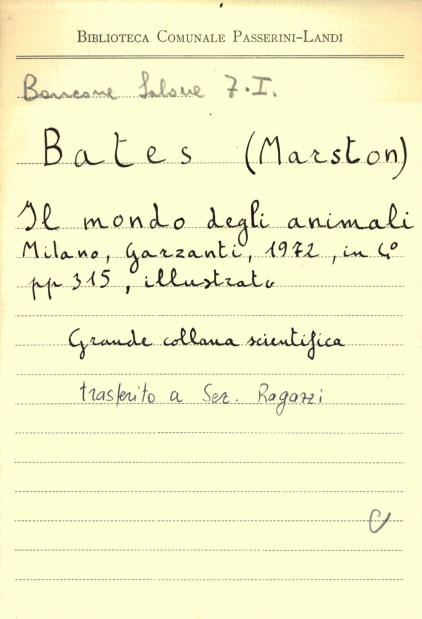 BIBLIOTECA COMUNALE PASSERINI-LANDI
Bancone Salone 7.I.
Bates (Marston)
Il mondo degli animali
Milano, Garzanti, 1972, in 4°
pp 315, illustrato
Grande collana scientifica
trasferito a Sez. Ragazzi
C